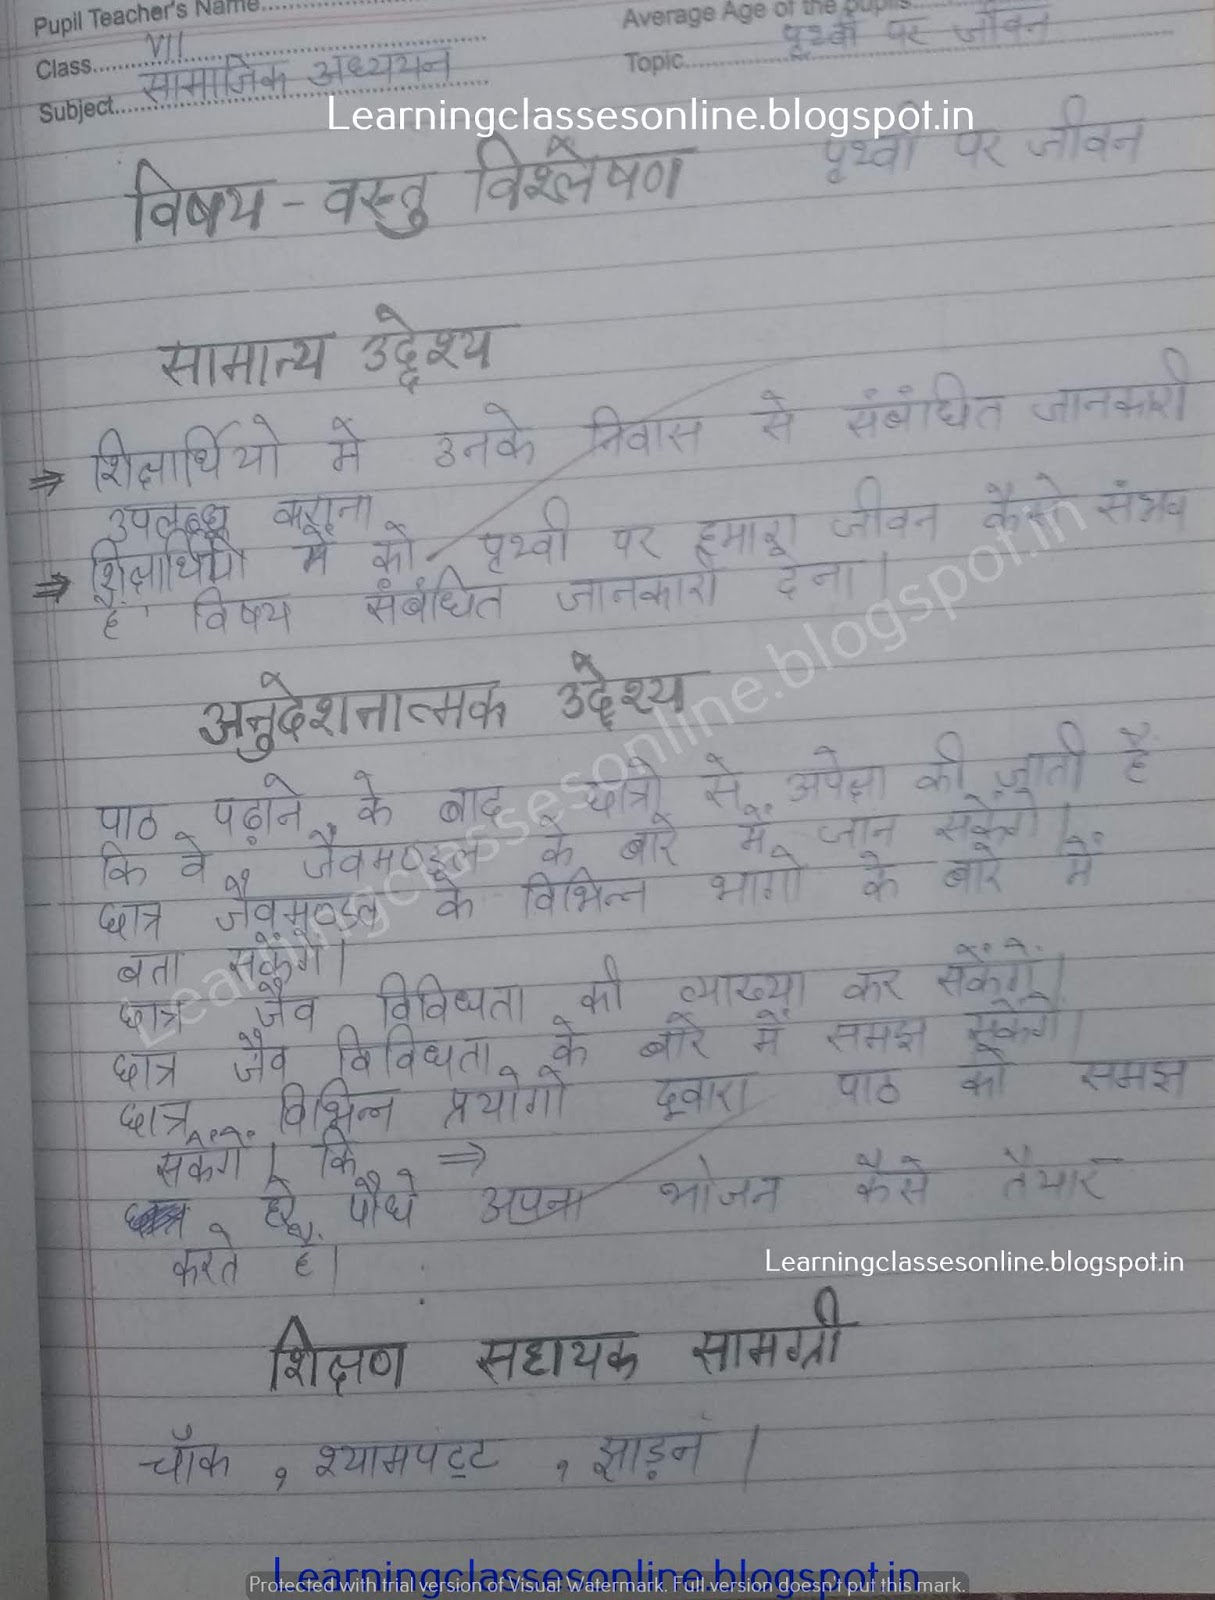 Pupil Teacher's Name
Average Age of the pupils
Class VII
Topic पृथ्वी पर जीवन
Subject सामाजिक अध्ययन
Learningclassesonline.blogspot.in
विषय - वस्तु विश्लेषण पृथ्वी पर जीवन
सामान्य उद्देश्य
⇒ शिक्षार्थियो में उनके निवास से संबंधित जानकारी
उपलब्ध कराना
⇒ शिक्षार्थियो में को पृथ्वी पर हमारा जीवन कैसे संभव
है विषय संबंधित जानकारी देना।
अनुदेशनात्मक उद्देश्य
पाठ पढ़ाने के बाद छात्रो से अपेक्षा की जाती है
कि वे जैवमण्डल के बारे में जान सकेंगे।
छात्र जैवमण्डल के विभिन्न भागो के बारे में
बता सकेंगे।
छात्र जैव विविधता की व्याख्या कर सकेंगे।
छात्र जैव विविधता के बारे में समझ सकेंगे।
छात्र विभिन्न प्रयोगो द्वारा पाठ को समझ
सकेंगे। कि ⇒
हरे पौधे अपना भोजन कैसे तैयार
करते है।
Learningclassesonline.blogspot.in
Learningclassesonline.blogspot.in
शिक्षण सहायक सामग्री
चॉक , श्यामपट्ट , झाड़न।
Learningclassesonline.blogspot.in
Protected with trial version of Visual Watermark. Full version doesn't put this mark.